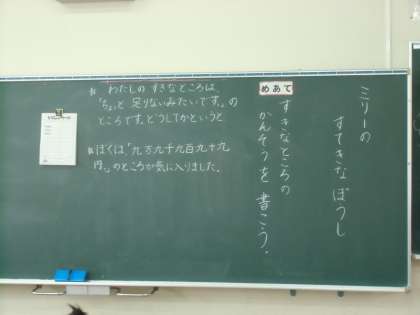 ミリーの
すてきなぼうし
めあて
すきなところの
かんそうを書こう。
わたしの すきなところは、
「ちょっと 足りないみたいです。」の
ところです。どうしてかというと
ぼくは「九万九千九百九十九
円。」のところが気に入りました。